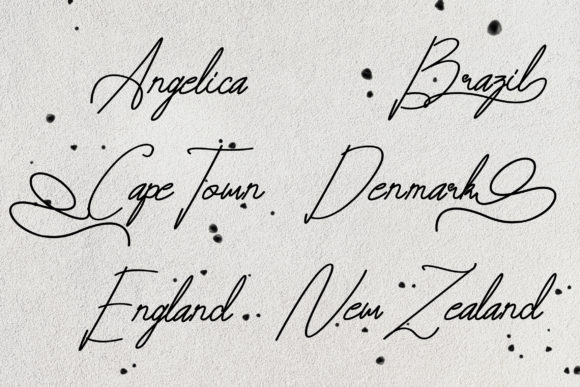 Angelica Brazil
Cape Town Denmark
England New Zealand